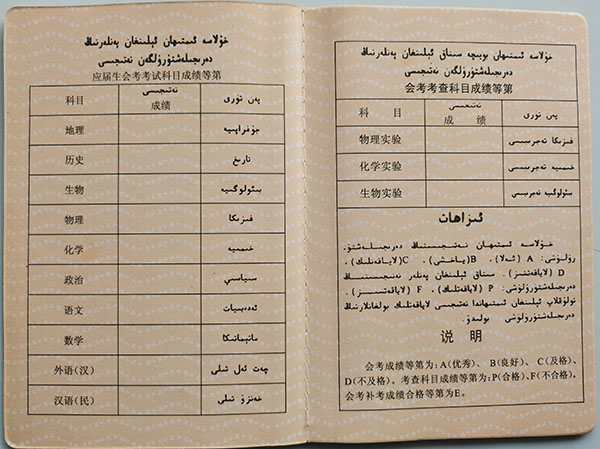 خۇلاسە ئىمتىھان ئېلىنغان پەنلەرنىڭ
دەرىجىلەشتۈرۈلگەن نەتىجىسى
应届生会考考试科目成绩等第
科目 نەتىجىسى 成绩 پەن تۈرى
地理 جۇغراپىيە
历史 تارىخ
生物 بىئولوگىيە
物理 فىزىكا
化学 خىمىيە
政治 سىياسىي
语文 ئەدەبىيات
数学 ماتېماتىكا
外语(汉) چەت ئەل تىلى
汉语(民) خەنزۇ تىلى
خۇلاسە ئىمتىھان بويىچە سىناق ئېلىنغان پەنلەرنىڭ
دەرىجىلەشتۈرۈلگەن نەتىجىسى
会考考查科目成绩等第
科 目 نەتىجىسى 成 绩 پەن تۈرى
物理实验 فىزىكا تەجرىبىسى
化学实验 خىمىيە تەجرىبىسى
生物实验 بىئولوگىيە تەجرىبىسى
ئىزاھات
خۇلاسە ئىمتىھان نەتىجىسىنىڭ دەرىجىلەشتۈ-
رۈلۈشى: A (ئەلا)، B(ياخشى)، C(لاياقەتلىك)،
D (لاياقەتسىز). سىناق ئېلىنغان پەنلەر نەتىجىسىنىڭ
دەرىجىلەشتۈرۈلۈشى: P (لاياقەتلىك)، F (لاياقەتسىز)،
تولۇقلاپ ئېلىنغان ئىمتىھاندا نەتىجىسى لاياقەتلىك بولغانلارنىڭ
دەرىجىلەشتۈرۈلۈشى بولىدۇ.
说 明
会考成绩等第为:A(优秀)、B(良好)、C(及格)、
D(不及格)。考查科目成绩等第为:P(合格)、F(不合格)。
会考补考成绩合格等第为E。